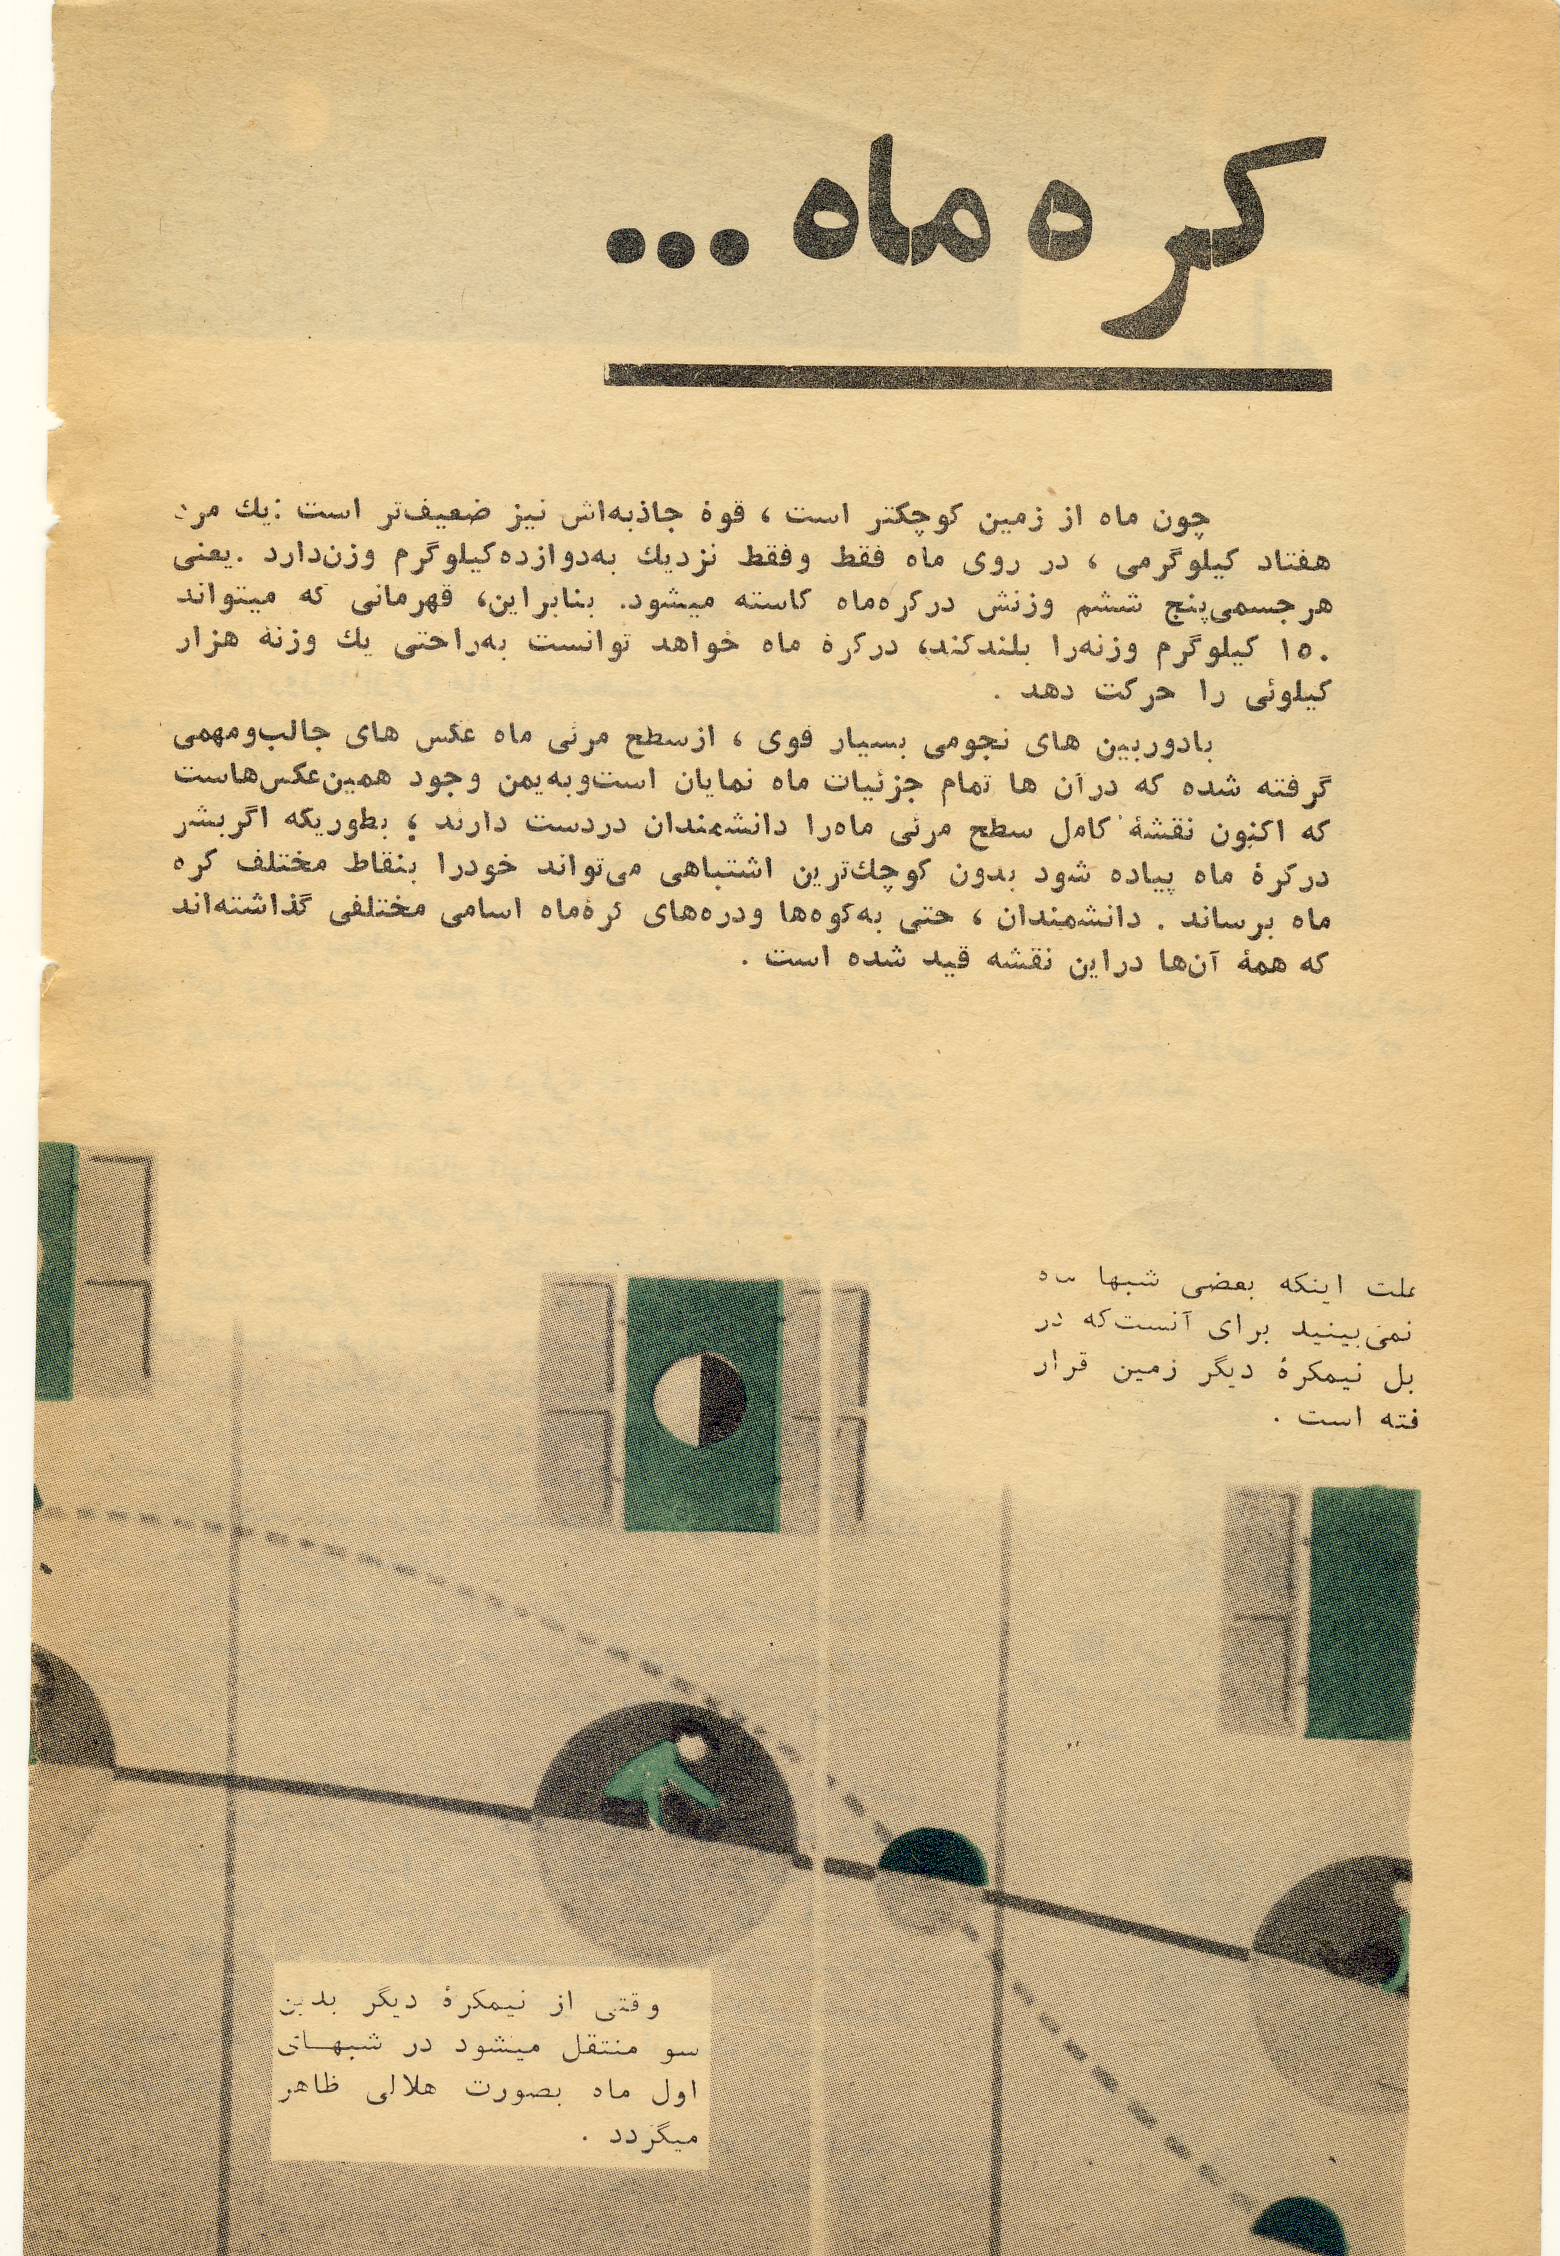 کره ماه ...
چون ماه از زمین کوچکتر است ، قوۀ جاذبه‌اش نیز ضعیف‌تر است : یك مرد
هفتاد کیلوگرمی ، در روی ماه فقط وفقط نزدیك به‌دوازده‌کیلوگرم وزن‌دارد . یعنی
هرجسمی‌پنج ششم وزنش درکره‌ماه کاسته میشود. بنابراین، قهرمانی که میتواند
۱۵۰ کیلوگرم وزنه‌را بلندکند، درکرۀ ماه خواهد توانست به‌راحتی یك وزنۀ هزار
کیلوئی را حرکت دهد .
بادوربین های نجومی بسیار قوی ، ازسطح مرئی ماه عکس های جالب‌ومهمی
گرفته شده که درآن ها تمام جزئیات ماه نمایان است‌وبه‌یمن وجود همین‌عکس‌هاست
که اکنون نقشۀ کامل سطح مرئی ماه‌را دانشمندان دردست دارند ؛ بطوریکه اگربشر
درکرۀ ماه پیاده شود بدون کوچك‌ترین اشتباهی می‌تواند خودرا بنقاط مختلف کره
ماه برساند . دانشمندان ، حتی به‌کوه‌ها ودره‌های کرۀ‌ماه اسامی مختلفی گذاشته‌اند
که همۀ آن‌ها دراین نقشه قید شده است .
علت اینکه بعضی شبها ماه
نمی‌بینید برای آنست‌که در
بل نیمکرۀ دیگر زمین قرار
فته است .
وقتی از نیمکرۀ دیگر بدین
سو منتقل میشود در شبهـای
اول ماه بصورت هلالی ظاهر
میگردد .